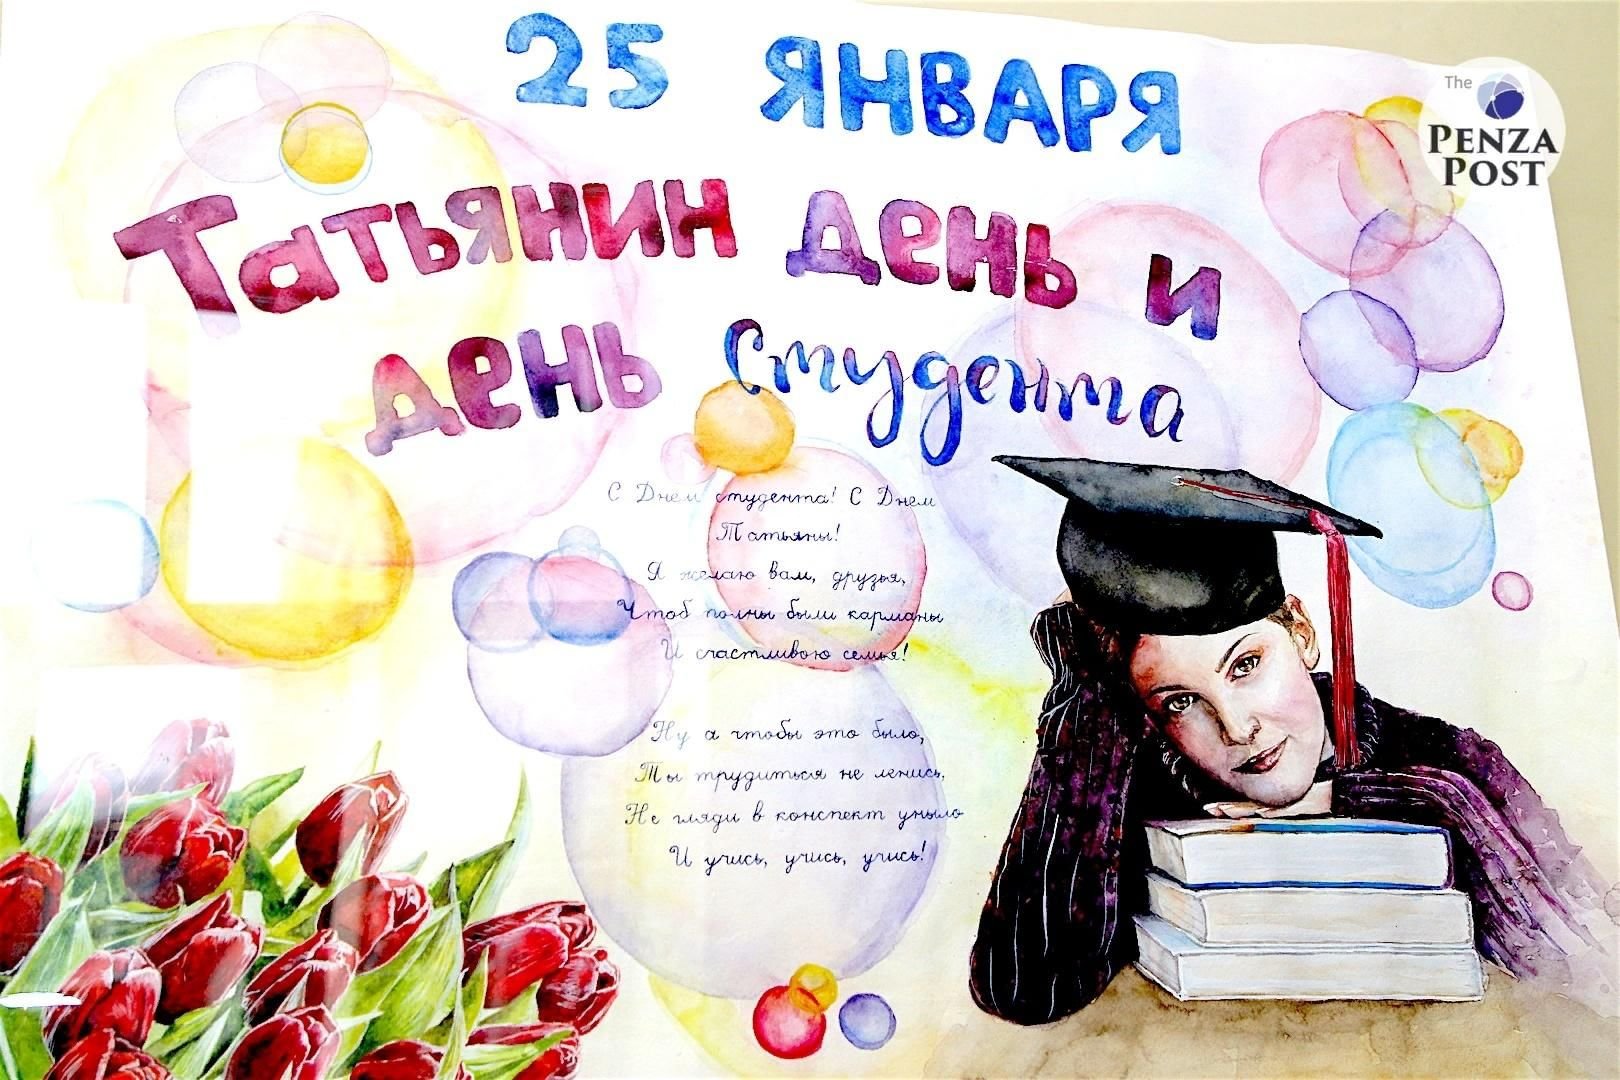 25 ЯНВАРЯ
The
PENZA
POST
Татьянин день и
день студента
С Днём студента! С Днем
Татьяны!
Я желаю вам, друзья,
Чтоб полны были карманы
И счастливою семья!
Ну а чтобы это было,
Ты трудиться не ленись,
Не гляди в конспект уныло
И учись, учись, учись!